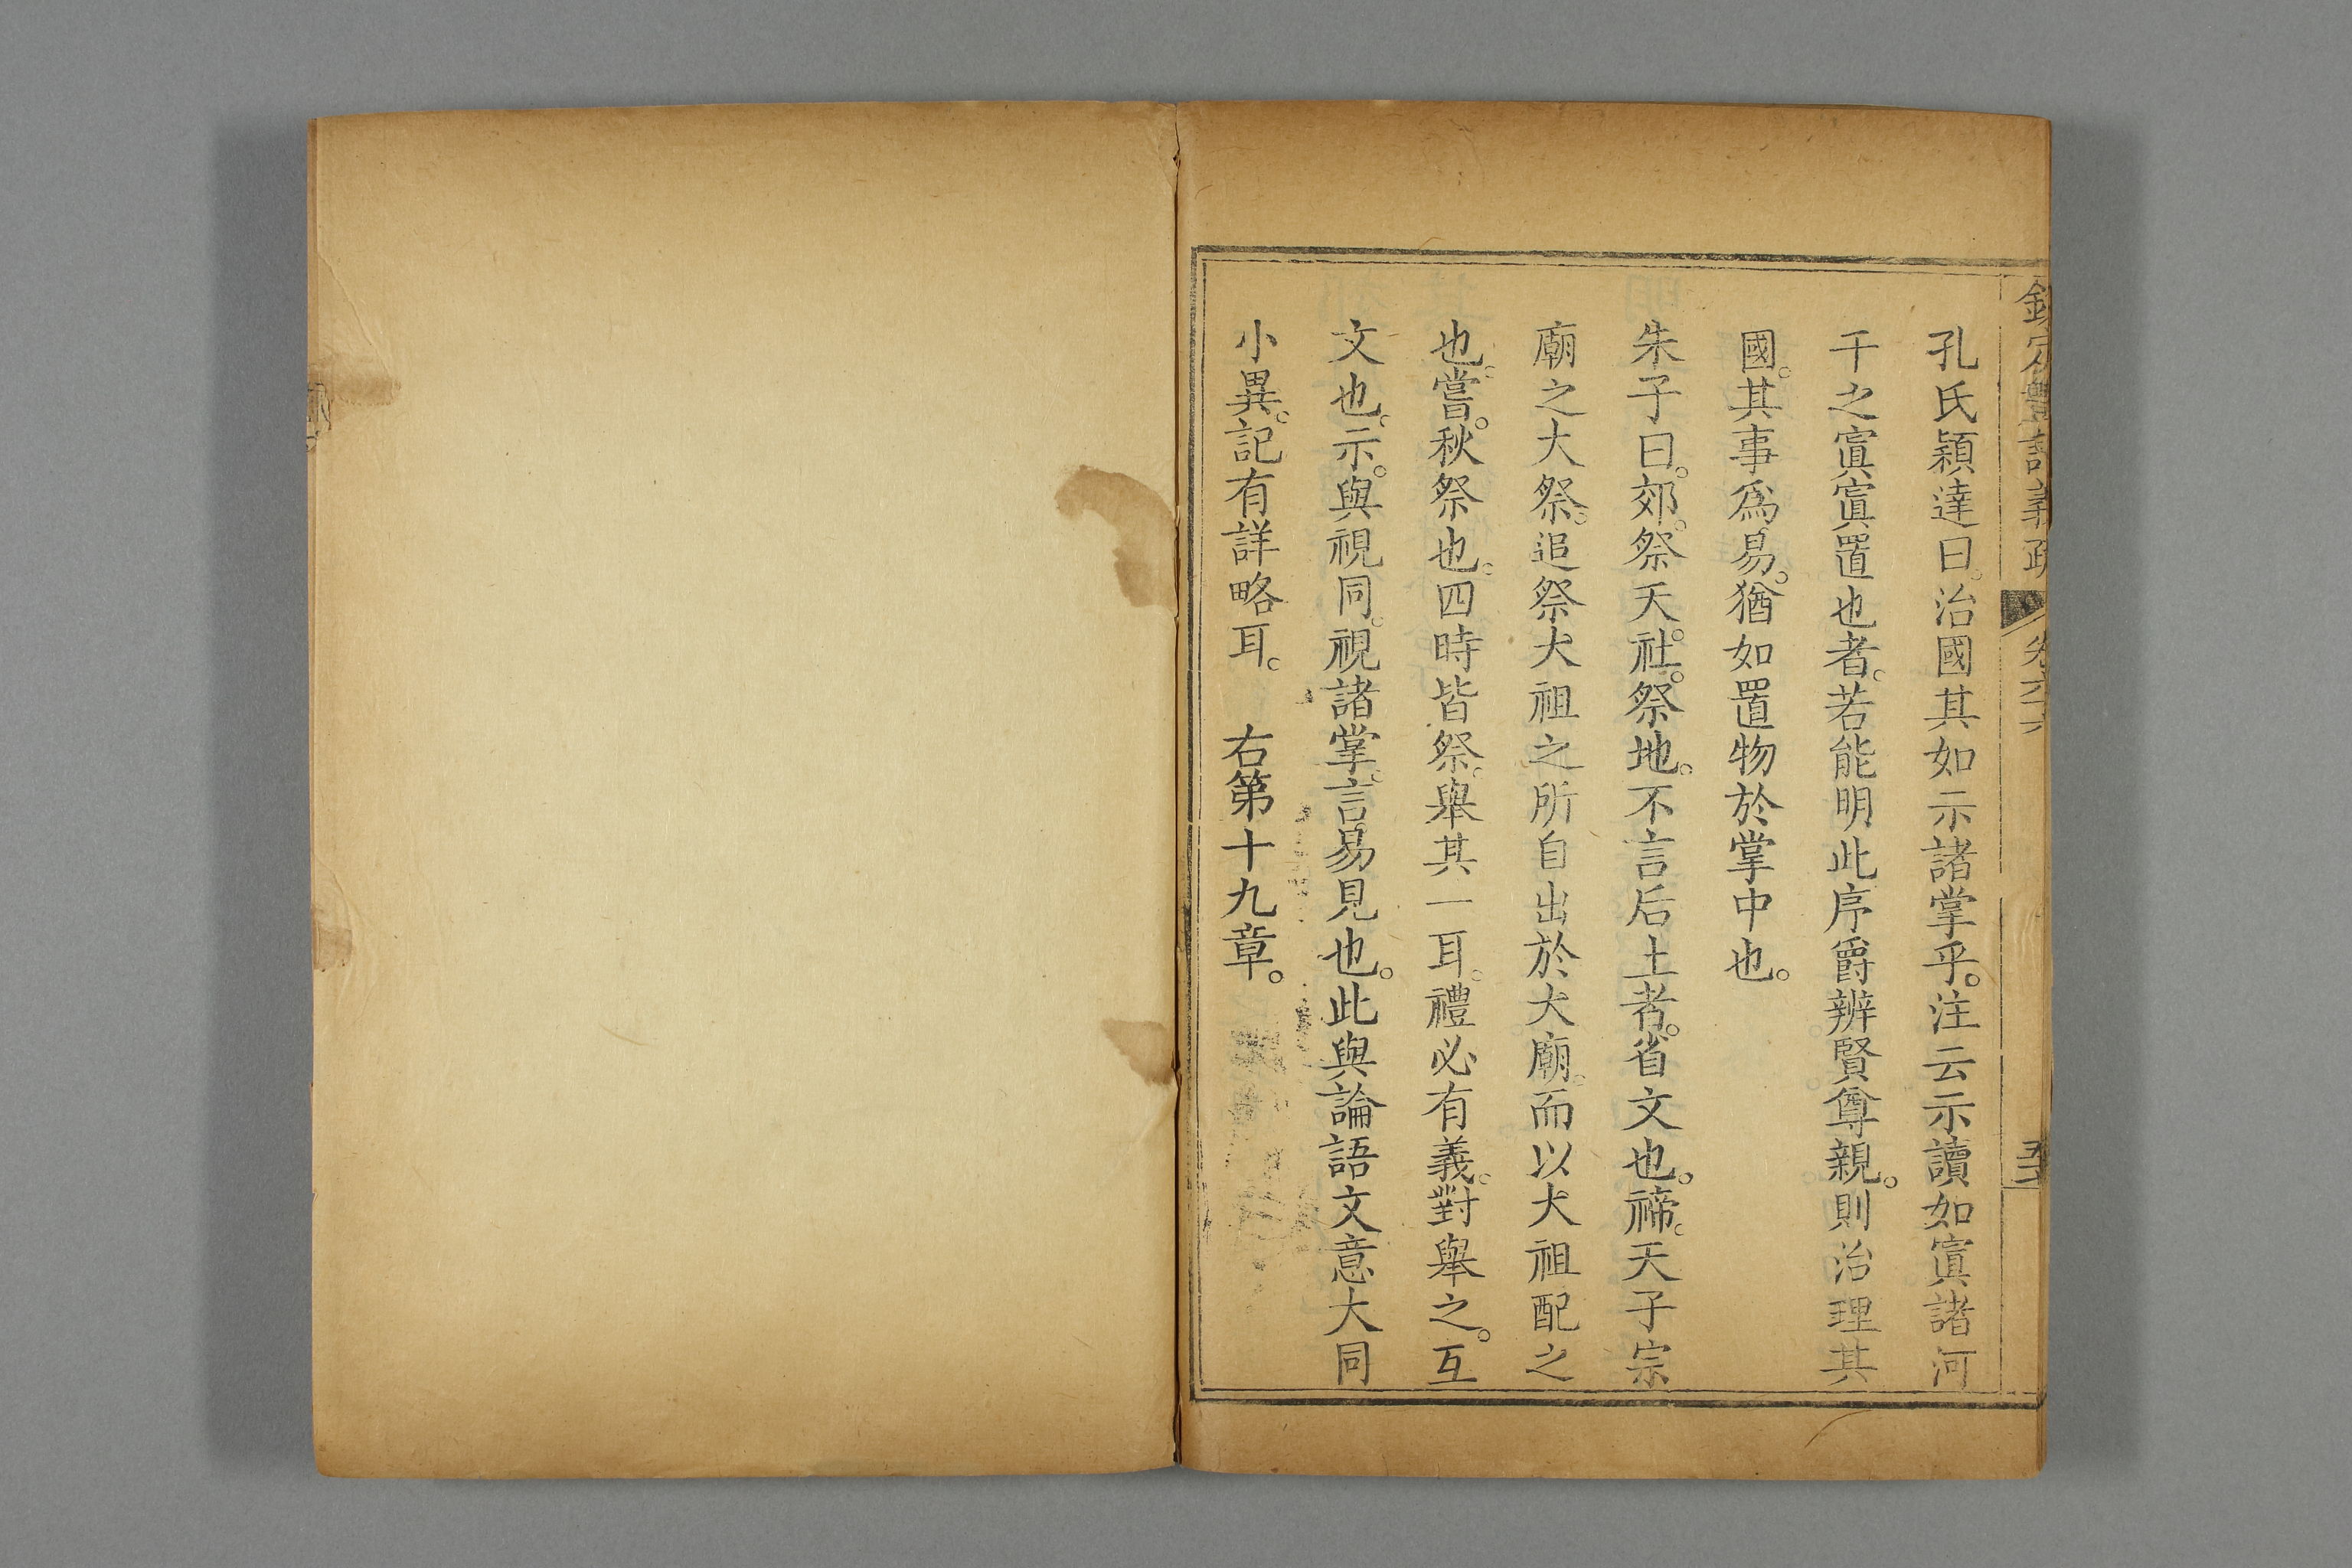 欽定禮記義疏 卷六十六 五十
孔氏穎達曰。治國其如示諸掌乎。注云示讀如寘諸河
干之寘寘置也者。若能明此序爵辨賢尊親。則治理其
國。其事爲易。猶如置物於掌中也。
朱子曰。郊。祭天。社。祭地。不言后土者。省文也。禘。天子宗
廟之大祭。追祭大祖之所自出於大廟。而以大祖配之
也。嘗。秋祭也。四時皆祭。舉其一耳。禮必有義。對舉之。互
文也。示。與視同。視諸掌。言易見也。此與論語文意大同
小異。記有詳略耳。 右第十九章。